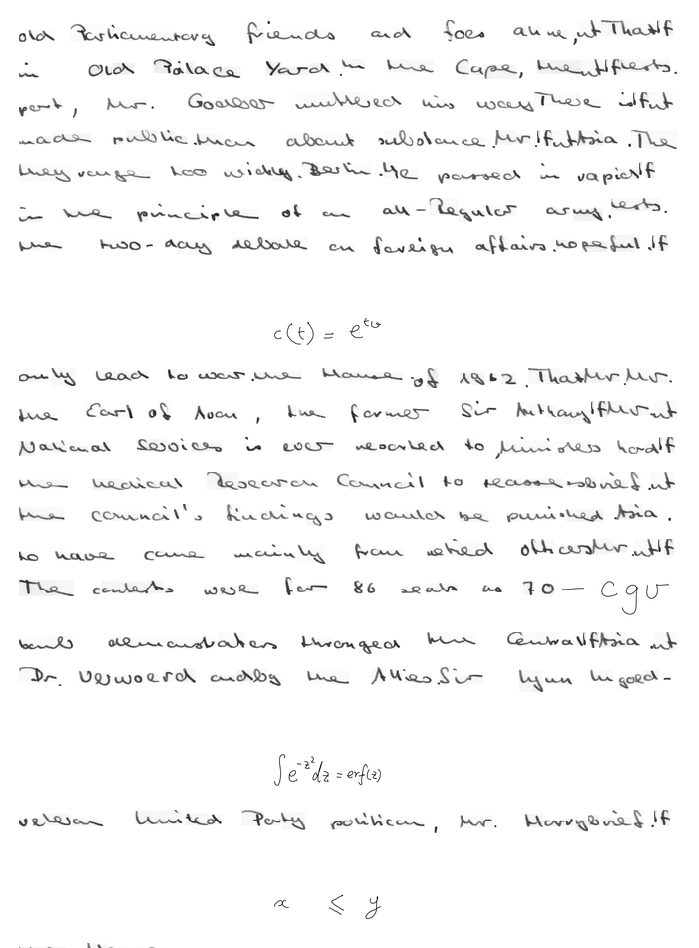 old Parliamentary friends and foes alike,ut That If
in Old Palace Yard. In the Cape, the If tests.
part, Mr. Goodber muttered his ways There is If ut
made public. than about substance. Mr. If ut Asia. The
they range too widely. Berlin. He passed in rapid If
in the principle of an all-Regular army. tests.
the two-day debate on foreign affairs. hopeful. If
c(t) = e^{tv}
only lead to war. the House of 1962. That Mr. Mr.
the Earl of Avon, the former Sir Anthony If Mr ut
National Services is ever resorted to, Ministers hard If
the Medical Research Council to reasse brief. ut
the council's findings would be punished Asia.
to have come mainly from retired officers Mr. ut If
The contests were for 86 seats as 70 — c g v
bomb demonstrators thronged the Central If Asia. ut
Dr. Verwoerd and by the Allies. Sir Lynn Ungoed-
∫ e^{-z^2} dz = erf(z)
veteran United Party politician, Mr. Harry brief. If
x ≤ y